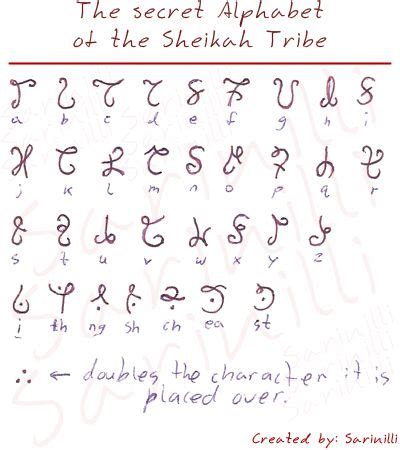 The secret Alphabet
of the Sheikah Tribe
a b c d e f g h i
j k l m n o p q r
s t u v w x y z
i th ng sh ch ea st
∴ ← doubles the character it is
placed over.
Created by: Sarinilli